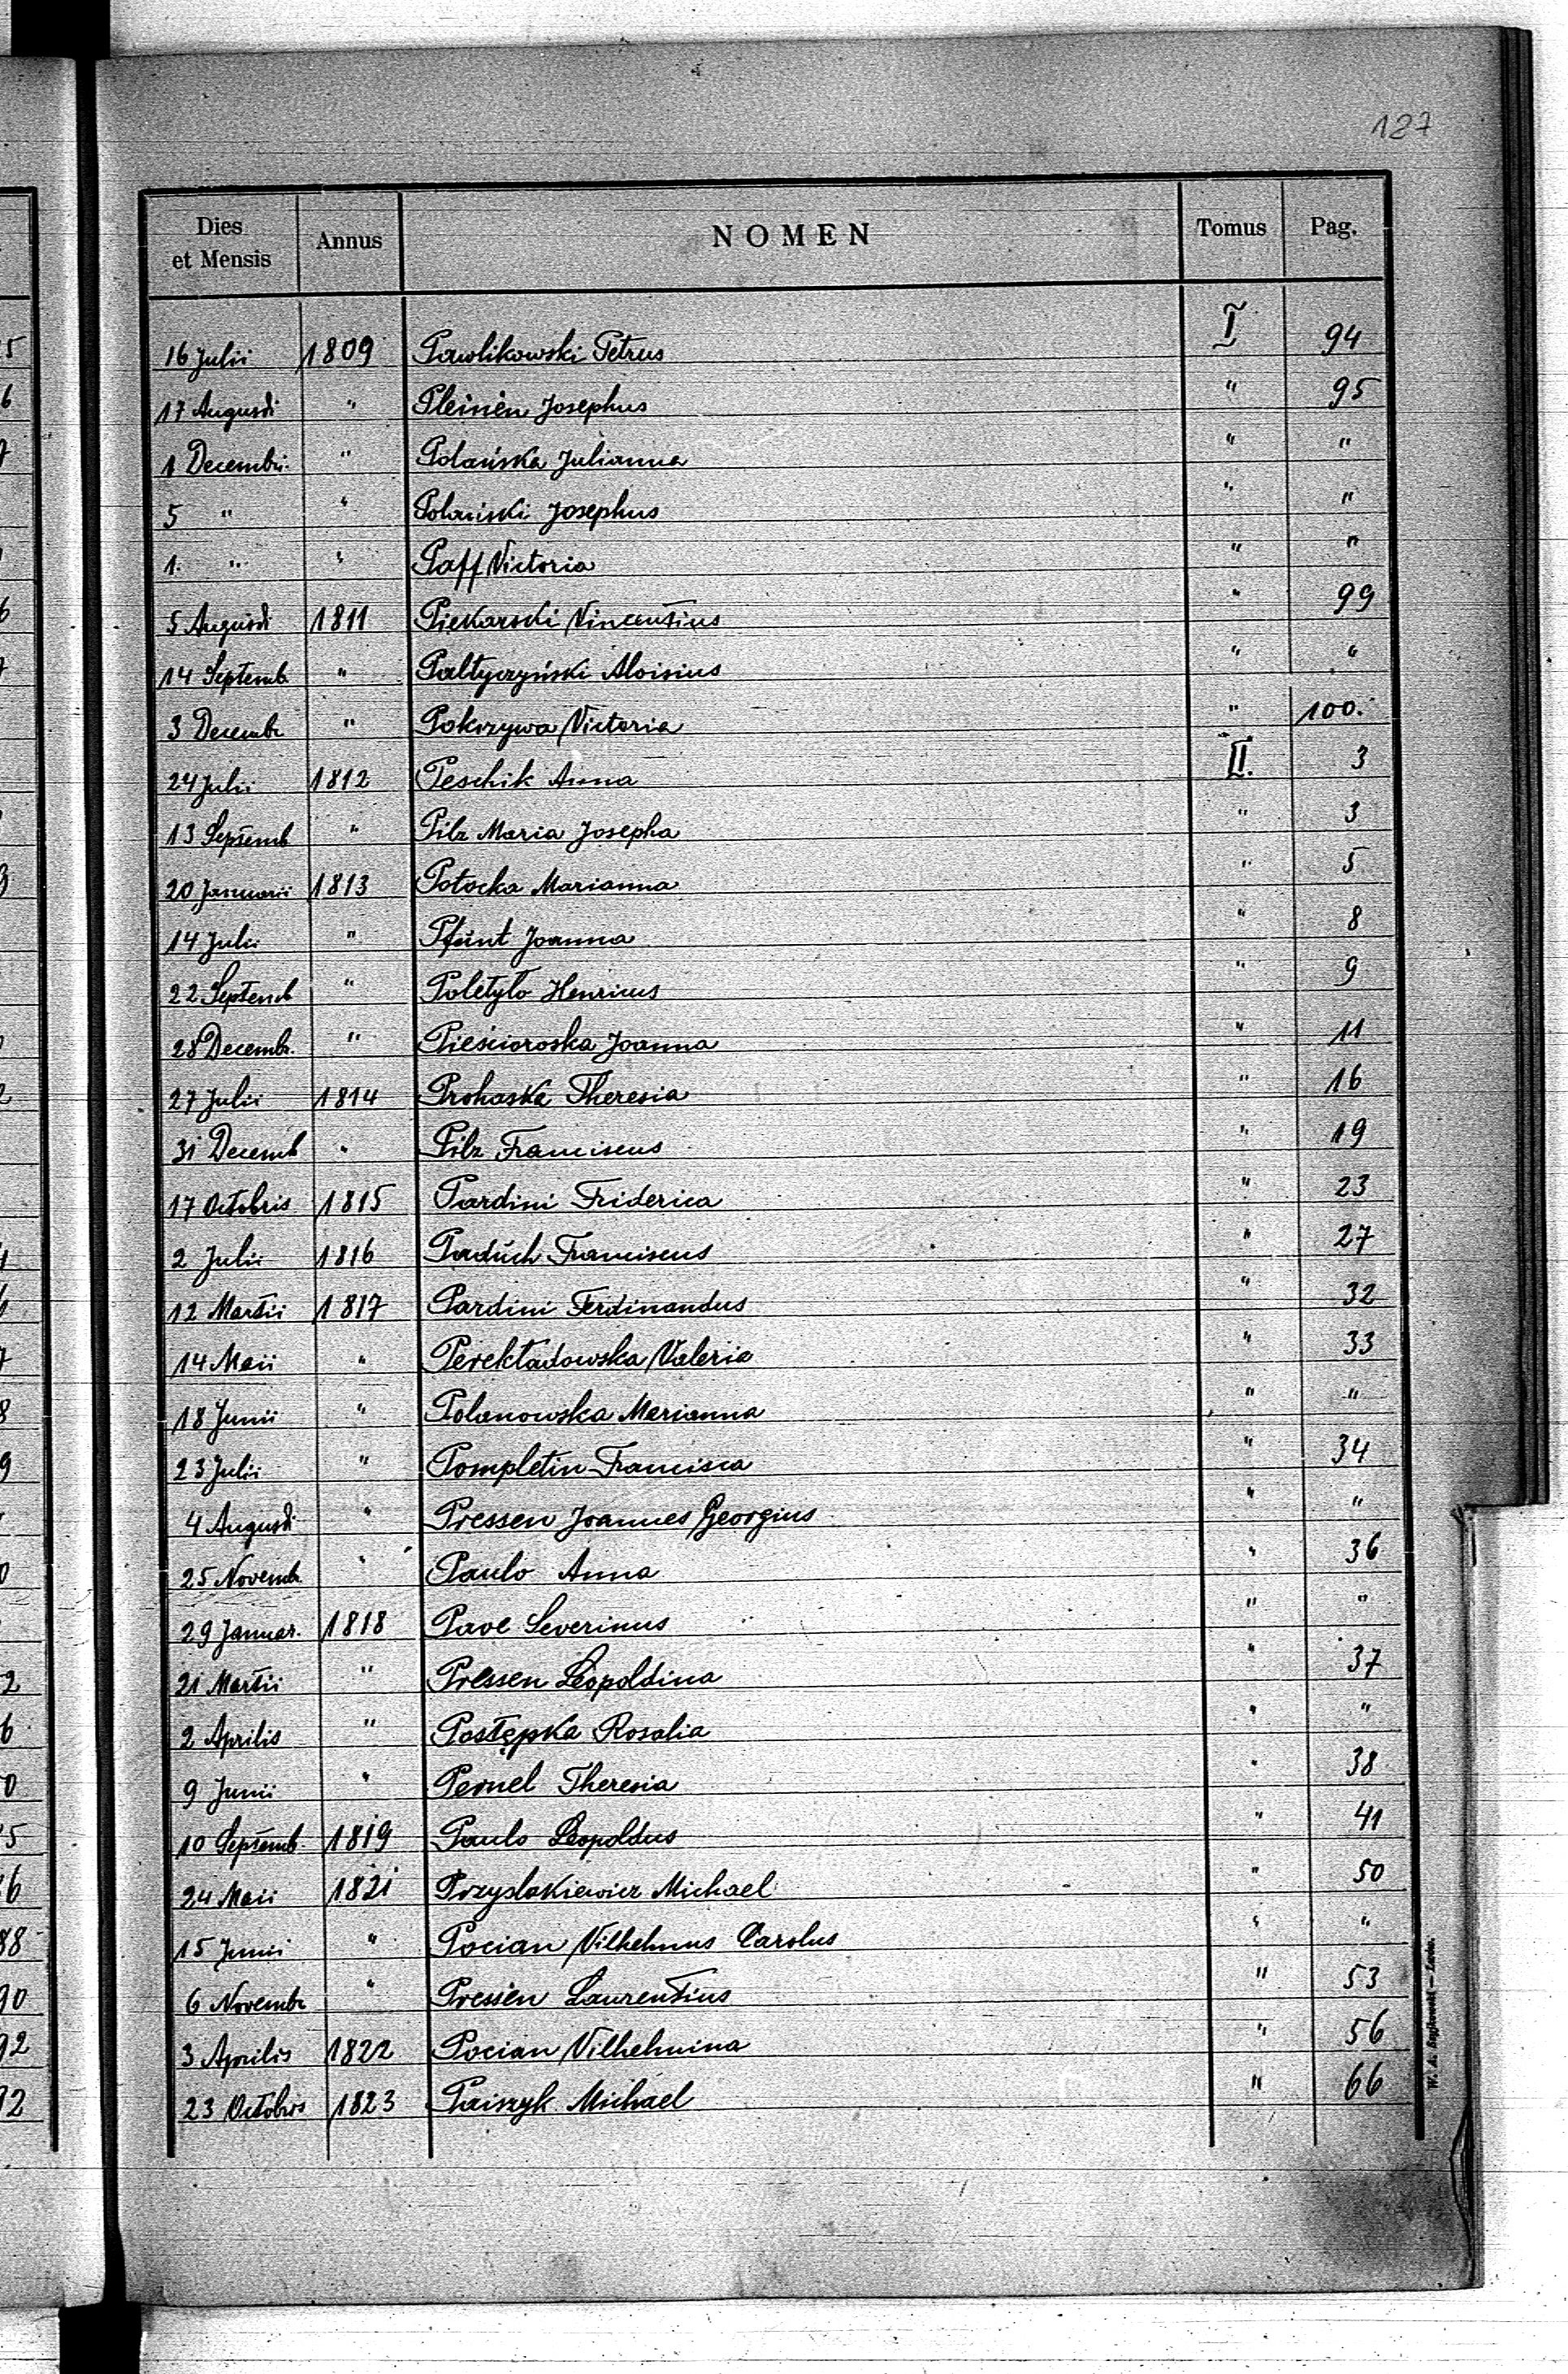 127
Dies et Mensis Annus NOMEN Tomus Pag.
16 Julii 1809 Pawlikowski Petrus I 94
17 Augusti " Pleinen Josephus " 95
1 Decembri. " Polańska Julianna " "
5 " " Polański Josephus " "
1. " " Paff Victoria " "
5 Augusti 1811 Piekarski Vincentius " 99
14 Septemb " Paltyczyński Aloisius " "
3 Decembr " Pokrzywa Victoria " 100.
24 Julii 1812 Peschik Anna II. 3
13 Septemb " Pilz Maria Josepha " 3
20 Januarii 1813 Potocka Marianna " 5
14 Julii " Pfeint Joanna " 8
22 Septemb " Poletyło Henricus " 9
28 Decembr. " Pieścioroska Joanna " 11
27 Julii 1814 Prohaska Theresia " 16
31 Decemb " Pilz Franciscus " 19
17 Octobris 1815 Pardini Friderica " 23
2 Julii 1816 Paduch Franciscus " 27
12 Martii 1817 Pardini Ferdinandus " 32
14 Maii " Perekładowska Valeria " 33
18 Junii " Polanowska Marianna " "
23 Julii " Pompletin Francisca " 34
4 Augusti " Pressen Joannes Georgius " "
25 Novemb. " Paulo Anna " 36
29 Januar. 1818 Pave Severinus " "
21 Martii " Pressen Leopoldina " 37
2 Aprilis " Postępka Rosalia " "
9 Junii " Pernel Theresia " 38
10 Septemb. 1819 Paulo Leopoldus " 41
24 Maii 1821 Przyslakiewicz Michael " 50
15 Junii " Pocian Vilhelmus Carolus " "
6 Novembr " Pressen Laurentius " 53
3 Aprilis 1822 Pocian Vilhelmina " 56
23 Octobris 1823 Paiszyk Michael " 66